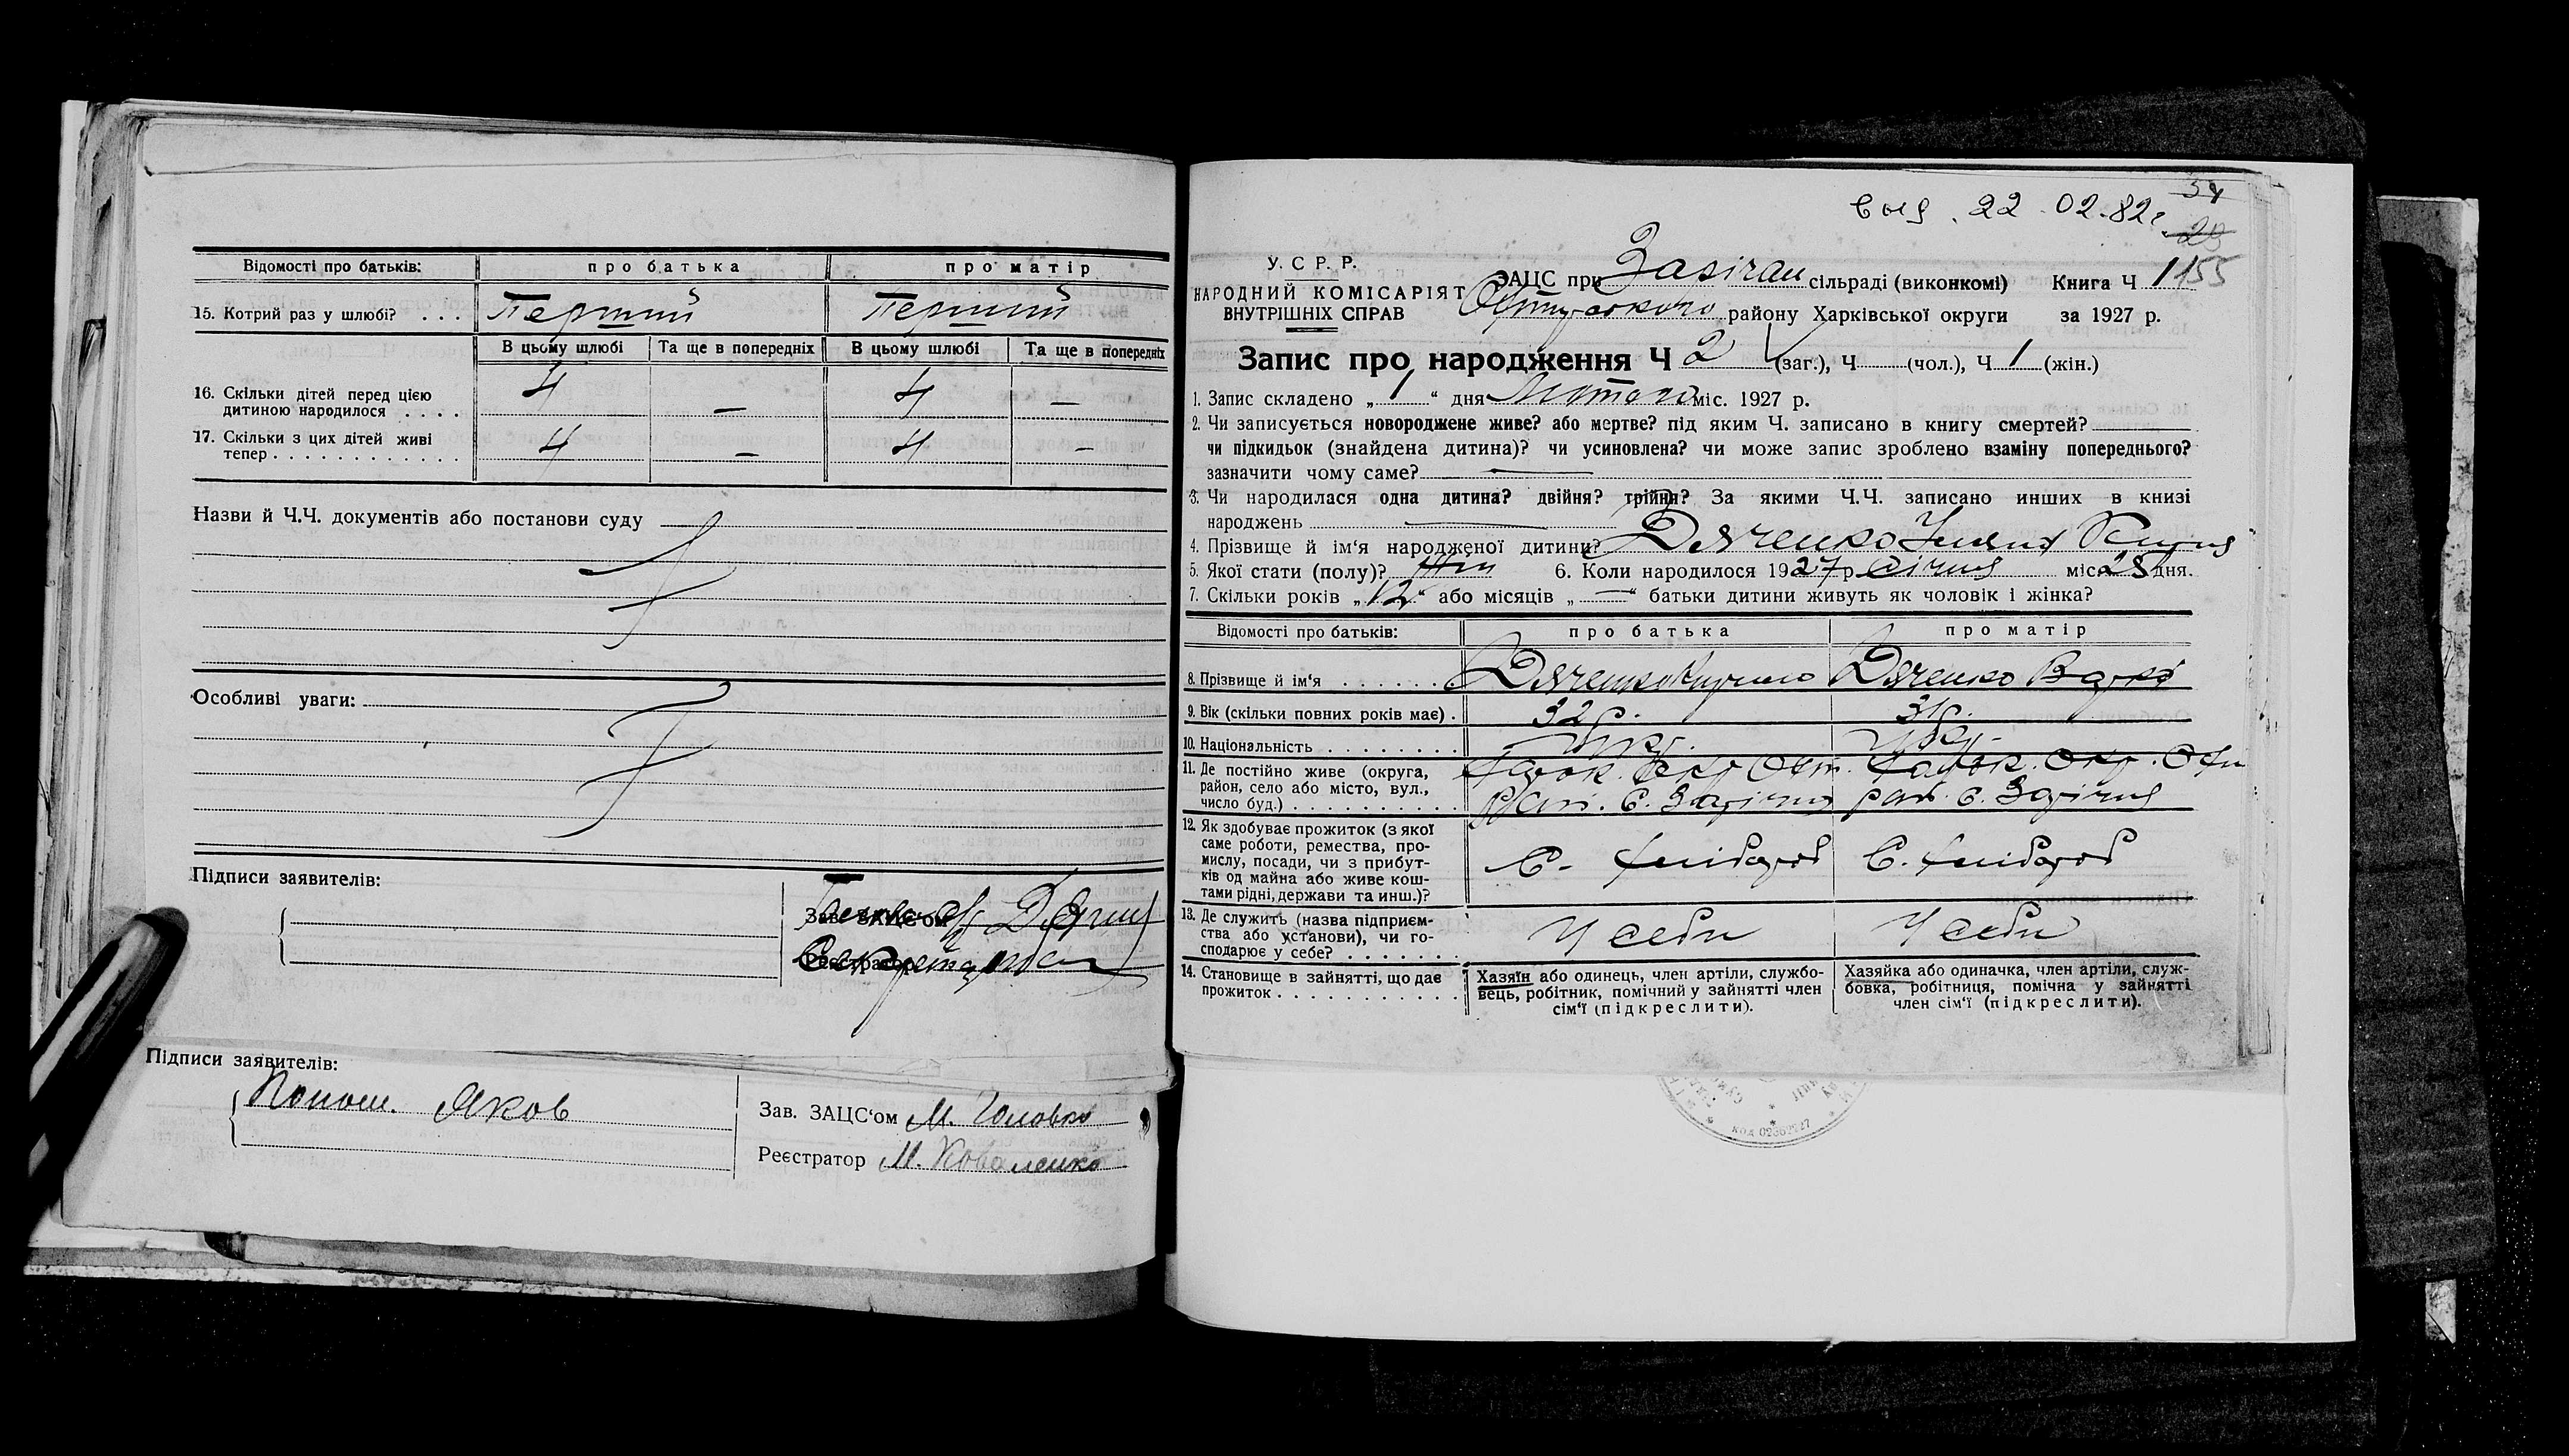 Відомості про батьків: про батька про матір
15. Котрий раз у шлюбі? . . . Перший Перший
В цьому шлюбі Та ще в попередніх В цьому шлюбі Та ще в попередніх
16. Скільки дітей перед цією
дитиною народилося . . . . 4 — 4 —
17. Скільки з цих дітей живі
тепер . . . . . . . . . . . . 4 — 4 —
Назви й Ч.Ч. документів або постанови суду
Особливі уваги:
Підписи заявителів:
Зав. ЗАЦС'ом
Реєстратор
Підписи заявителів:
Яков
Зав. ЗАЦС'ом М. Головко
Реєстратор М. Коваленко
выд. 22.02.82г.
34
29
У. С. Р. Р.
НАРОДНИЙ КОМІСАРІЯТ
ВНУТРІШНІХ СПРАВ
ЗАЦС при Зарічан сільраді (виконкомі) Книга Ч 1 155
району Харківської округи за 1927 р.
Запис про народження Ч 2 (заг.), Ч (чол.), Ч 1 (жін.)
1. Запис складено „ 1 “ дня Лютого міс. 1927 р.
2. Чи записується новороджене живе? або мертве? під яким Ч. записано в книгу смертей?
чи підкидьок (знайдена дитина)? чи усиновлена? чи може запис зроблено взаміну попереднього?
зазначити чому саме? —
3. Чи народилася одна дитина? двійня? трійня? За якими Ч.Ч. записано инших в книзі
народжень —
4. Прізвище й ім'я народженої дитини? Дяченко
5. Якої стати (полу)? Жін 6. Коли народилося 1927 р. Січня міс. 25 дня.
7. Скільки років „ 12 “ або місяців „ — “ батьки дитини живуть як чоловік і жінка?
Відомості про батьків: про батька про матір
8. Прізвище й ім'я . . . . . . . Дяченко Кирило Дяченко Варка
9. Вік (скільки повних років має) . 32 р. 31 р.
10. Національність . . . . . . . . Укр. Укр.
11. Де постійно живе (округа,
район, село або місто, вул.,
число буд.) . . . . . . . . . . Харьк. Окр. Харьк. Окр.
рай. с. Зарічня рай. с. Зарічня
12. Як здобуває прожиток (з якої
саме роботи, ремества, про-
мислу, посади, чи з прибут-
ків од майна або живе кош-
тами рідні, держави та инш.)? С. хлібороб С. хлібороб
13. Де служить (назва підприєм-
ства або установи), чи го-
сподарює у себе? . . . . . . У себи У себи
14. Становище в зайнятті, що дає
прожиток . . . . . . . . . . . .
Хазяїн або одинець, член артілі, службо-
вець, робітник, помічний у зайнятті член
сім'ї (підкреслити).
Хазяйка або одиначка, член артілі, служ-
бовка, робітниця, помічна у зайнятті
член сім'ї (підкреслити).